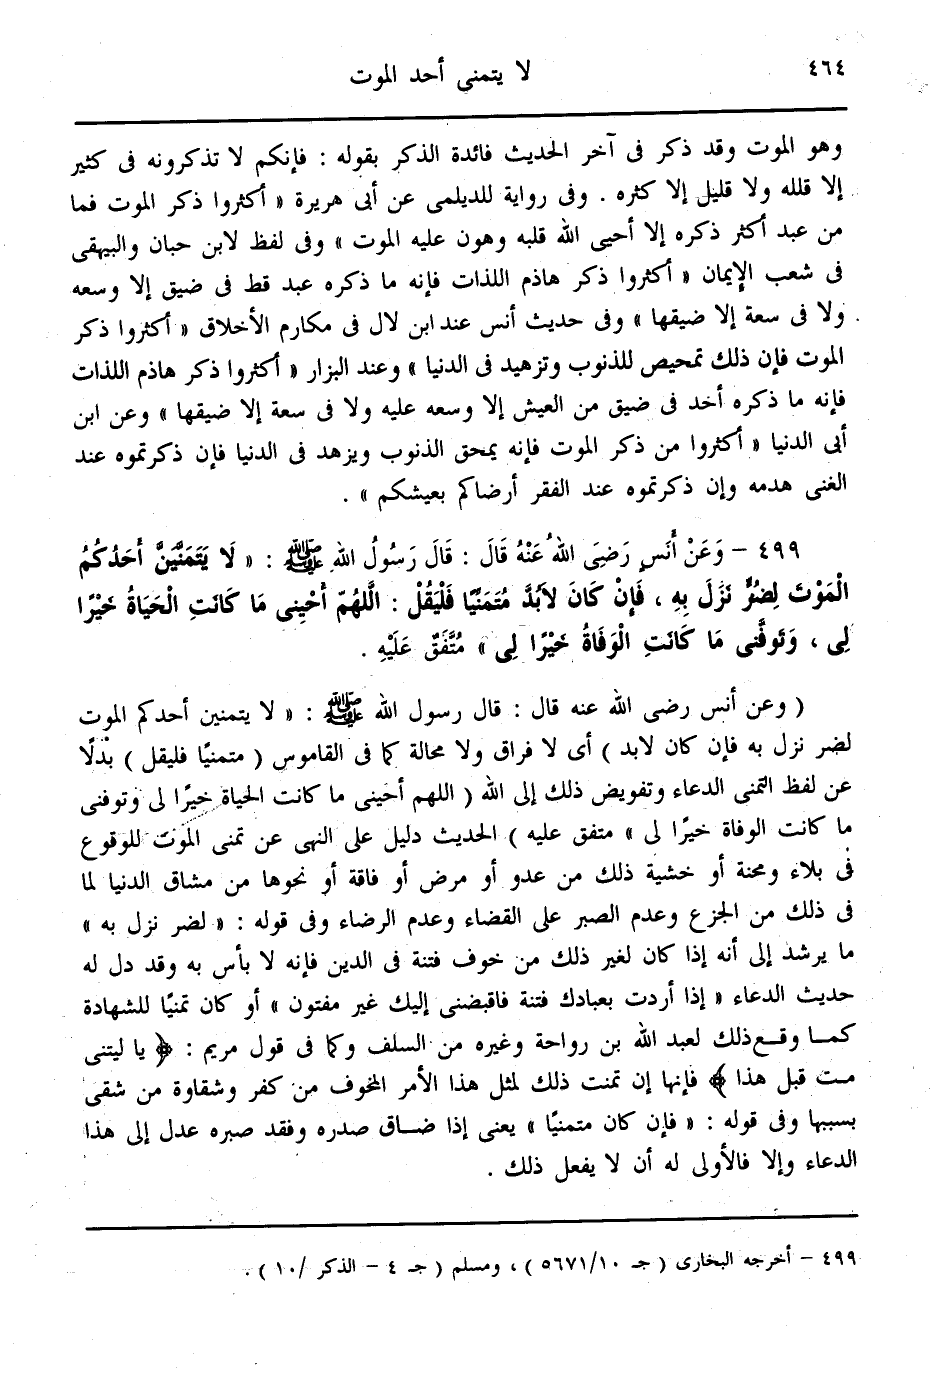 ٤٦٤
لا يتمنى أحد الموت
وهو الموت وقد ذكر فى آخر الحديث فائدة الذكر بقوله : فإنكم لا تذكرونه فى كثير
إلا قلله ولا قليل إلا كثره . وفى رواية للديلمى عن أبى هريرة « أكثروا ذكر الموت فما
من عبد أكثر ذكره إلا أحيى الله قلبه وهون عليه الموت » وفى لفظ لابن حبان والبيهقى
فى شعب الإيمان « أكثروا ذكر هاذم اللذات فإنه ما ذكره عبد قط فى ضيق إلا وسعه
ولا فى سعة إلا ضيقها » وفى حديث أنس عند ابن لال فى مكارم الأخلاق « أكثروا ذكر
الموت فإن ذلك تمحيص للذنوب وتزهيد فى الدنيا » وعند البزار « أكثروا ذكر هاذم اللذات
فإنه ما ذكره أحد فى ضيق من العيش إلا وسعه عليه ولا فى سعة إلا ضيقها » وعن ابن
أبى الدنيا « أكثروا من ذكر الموت فإنه يمحق الذنوب ويزهد فى الدنيا فإن ذكرتموه عند
الغنى هدمه وإن ذكرتموه عند الفقر أرضاكم بعيشكم » .
٤٩٩ – وَعَنْ أَنَسٍ رَضِىَ اللهُ عَنْهُ قَالَ : قَالَ رَسُولُ اللهِ ﷺ : « لَا يَتَمَنَّيَنَّ أَحَدُكُمُ
الْمَوْتَ لِضُرٍّ نَزَلَ بِهِ ، فَإِنْ كَانَ لَابُدَّ مُتَمَنِّيًا فَلْيَقُلْ : اللَّهُمَّ أَحْيِنِى مَا كَانَتِ الْحَيَاةُ خَيْرًا
لِى ، وَتَوَفَّنِى مَا كَانَتِ الْوَفَاةُ خَيْرًا لِى » مُتَّفَقٌ عَلَيْهِ .
( وعن أنس رضى الله عنه قال : قال رسول الله ﷺ : « لا يتمنين أحدكم الموت
لضر نزل به فإن كان لابد ) أى لا فراق ولا محالة كما فى القاموس ( متمنيًا فليقل ) بدلًا
عن لفظ التمنى الدعاء وتفويض ذلك إلى الله ( اللهم أحينى ما كانت الحياة خيرًا لى وتوفنى
ما كانت الوفاة خيرًا لى » متفق عليه ) الحديث دليل على النهى عن تمنى الموت للوقوع
فى بلاء ومحنة أو خشية ذلك من عدو أو مرض أو فاقة أو نحوها من مشاق الدنيا لما
فى ذلك من الجزع وعدم الصبر على القضاء وعدم الرضاء وفى قوله : « لضر نزل به »
ما يرشد إلى أنه إذا كان لغير ذلك من خوف فتنة فى الدين فإنه لا بأس به وقد دل له
حديث الدعاء « إذا أردت بعبادك فتنة فاقبضنى إليك غير مفتون » أو كان تمنيًا للشهادة
كما وقع ذلك لعبد الله بن رواحة وغيره من السلف وكما فى قول مريم : ﴿ يا ليتنى
مت قبل هذا ﴾ فإنها إن تمنت ذلك لمثل هذا الأمر المخوف من كفر وشقاوة من شقى
بسببها وفى قوله : « فإن كان متمنيًا » يعنى إذا ضاق صدره وفقد صبره عدل إلى هذا
الدعاء وإلا فالأولى له أن لا يفعل ذلك .
٤٩٩ – أخرجه البخارى ( جـ ٥٦٧١/١٠ ) ، ومسلم ( جـ ٤ – الذكر /١٠ ) .